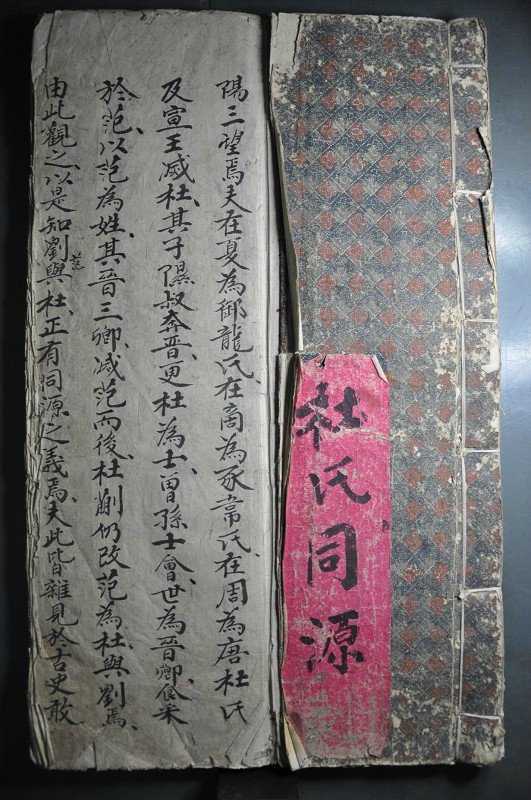 杜氏同源
陽三望焉夫在夏為御龍氏在商為豕韋氏在周為唐杜氏
及宣王滅杜其子隰叔奔晉更杜為士曾孫士會世為晉卿食采
於范以范為姓其晉三卿滅范而後杜蒯仍改范為杜與劉焉
由此觀之以是知劉范與杜正有同源之義焉夫此皆雜見於古史敢